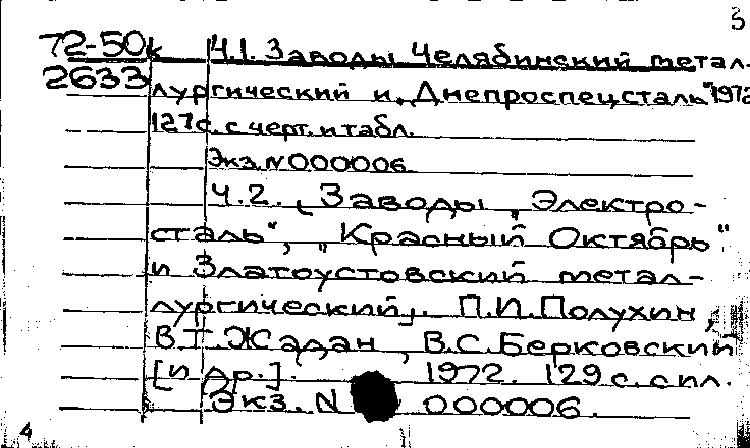 3
72-50к Ч.1. Заводы Челябинский метал-
2633 лургический и „Днепроспецсталь" 1972
127с. с черт. и табл.
Экз. N 000006
Ч.2. [Заводы „Электро-
сталь", „Красный Октябрь"
и Златоустовский метал-
лургический]. П.И. Полухин,
В.Г. Жадан, В.С. Берковский
[и др.]. 1972. 129 с. с ил.
Экз. N 000006.
4